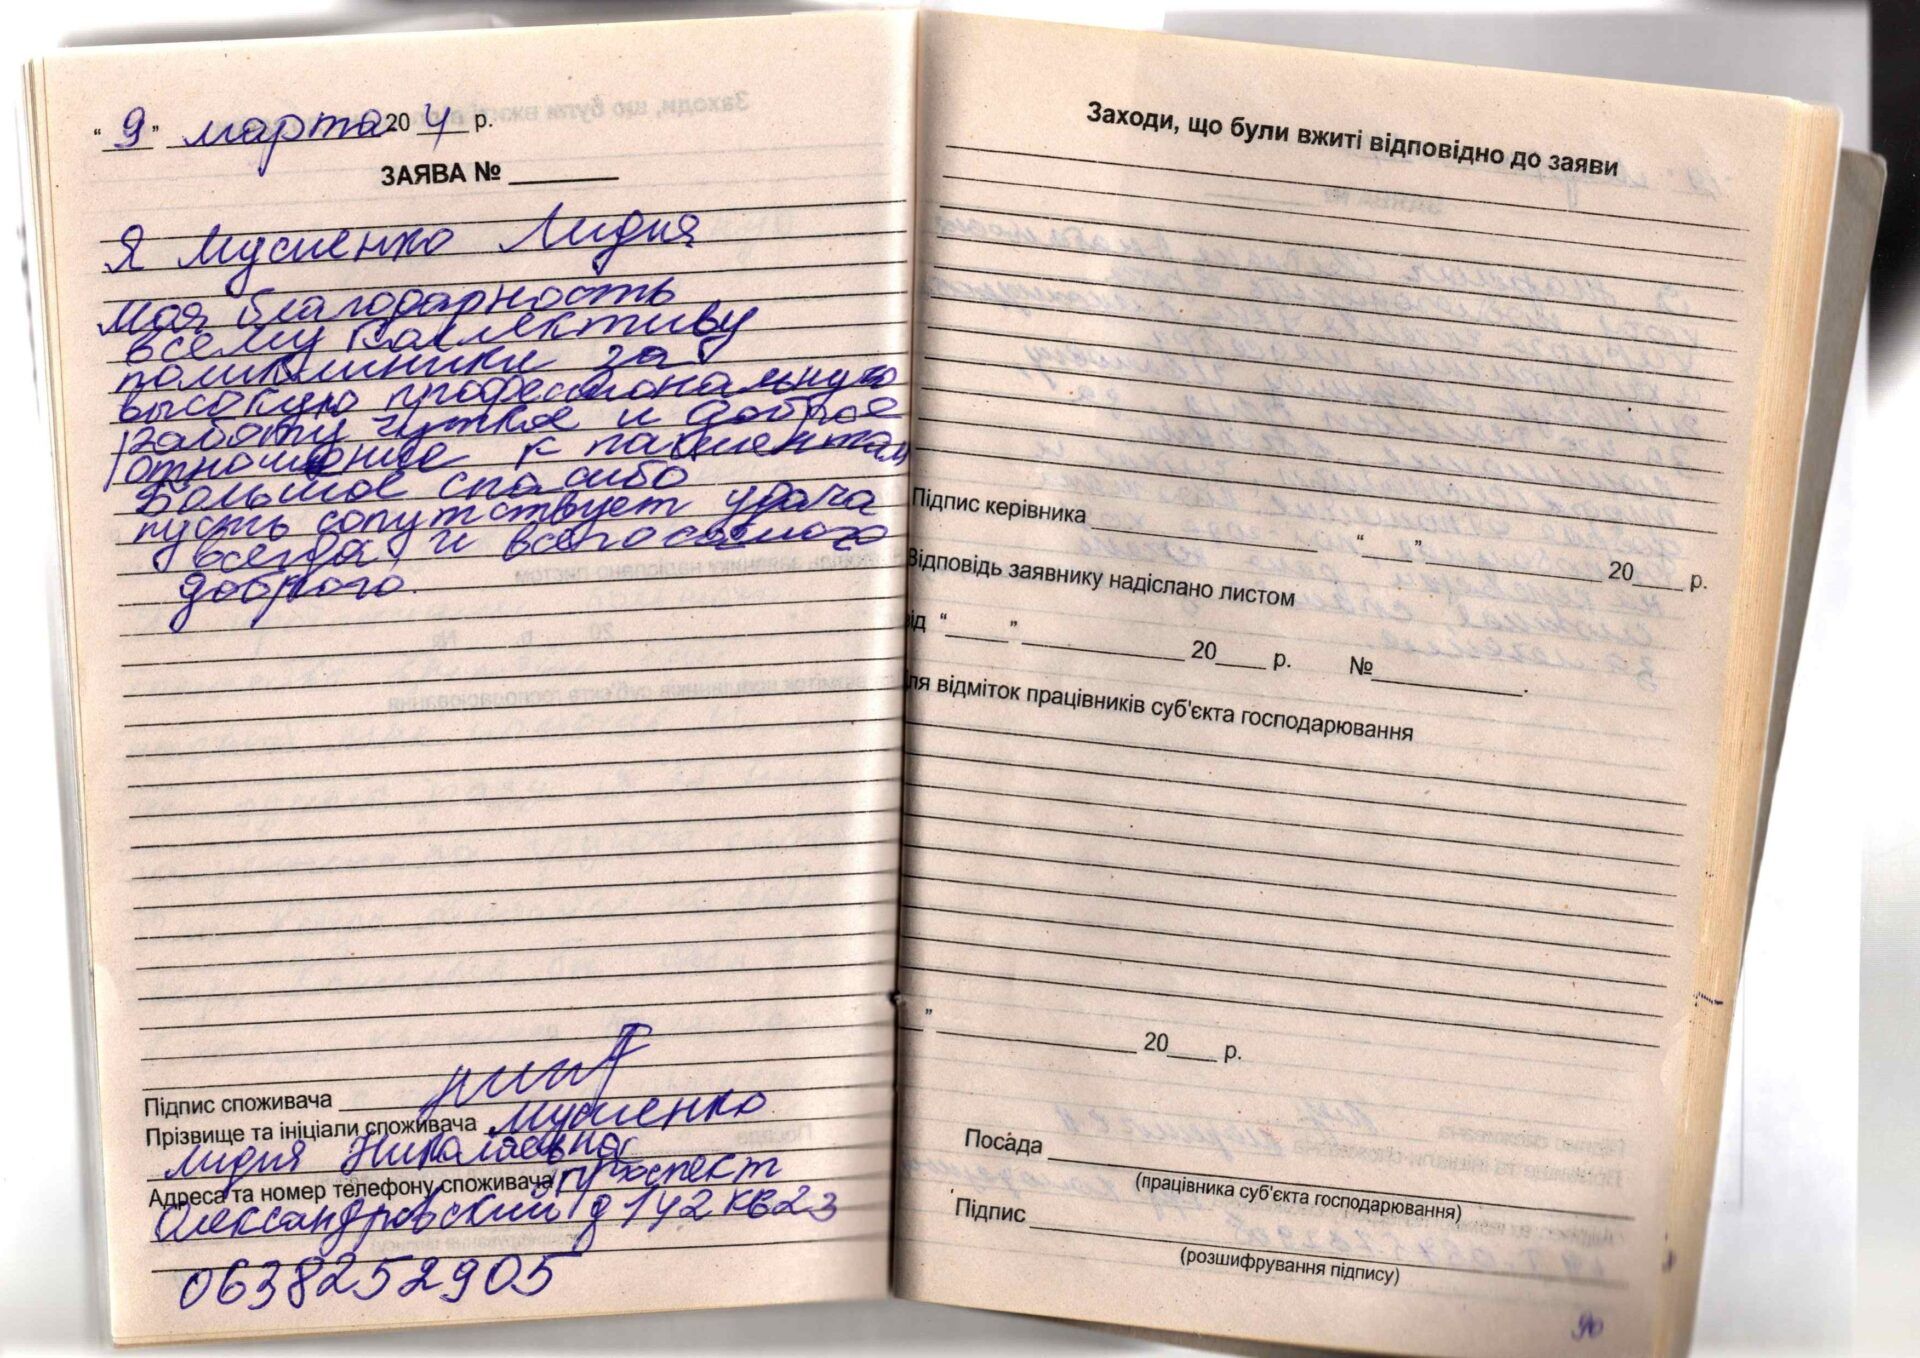 “9” марта 20 4 р.
ЗАЯВА № ______
Я Мусиенко Лидия
моя благодарность
всему коллективу
поликлиники за
высокую профессиональную
работу чуткое и доброе
отношение к пациентам
Большое спасибо
пусть сопутствует удача
всегда и всего самого
доброго.
Підпис споживача
Прізвище та ініціали споживача Мусиенко
Лидия Николаевна
Адреса та номер телефону споживача проспект
Олександровский д 142 кв 23
0638252905
Заходи, що були вжиті відповідно до заяви
Підпис керівника ______ “____” ______ 20____ р.
Відповідь заявнику надіслано листом
від “____” ______ 20____ р. №______.
Для відміток працівників суб'єкта господарювання
” ______ 20____ р.
Посада ______
(працівника суб'єкта господарювання)
Підпис ______
(розшифрування підпису)